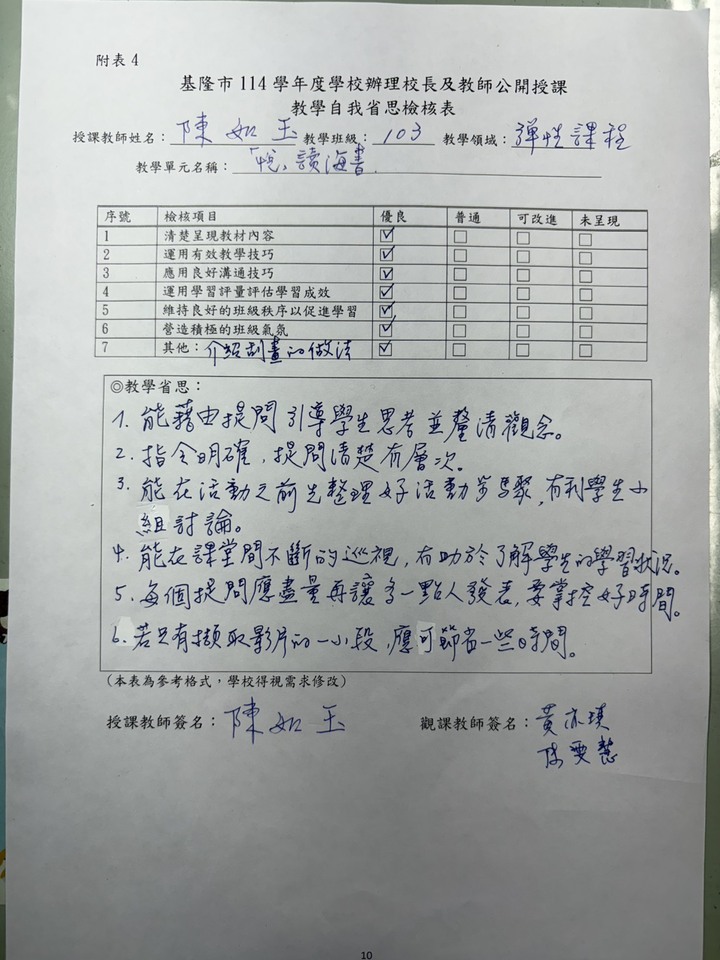 附表 4
基隆市 114 學年度學校辦理校長及教師公開授課
教學自我省思檢核表
授課教師姓名：陳如玉 教學班級：103 教學領域：彈性課程
教學單元名稱：「悅」讀海書
序號 檢核項目 優良 普通 可改進 未呈現
1 清楚呈現教材內容 ☑ □ □ □
2 運用有效教學技巧 ☑ □ □ □
3 應用良好溝通技巧 ☑ □ □ □
4 運用學習評量評估學習成效 ☑ □ □ □
5 維持良好的班級秩序以促進學習 ☑ □ □ □
6 營造積極的班級氣氛 ☑ □ □ □
7 其他：介紹刮畫的做法 ☑ □ □ □
◎教學省思：
1. 能藉由提問引導學生思考並釐清觀念。
2. 指令明確，提問清楚有層次。
3. 能在活動之前先整理好活動步驟，有利學生小
組討論。
4. 能在課堂間不斷的巡視，有助於了解學生的學習狀況。
5. 每個提問應盡量再讓多一點人發表，要掌控好時間。
6. 若只有擷取影片的一小段，應可節省一些時間。
（本表為參考格式，學校得視需求修改）
授課教師簽名：陳如玉 觀課教師簽名：黃亦琪
10